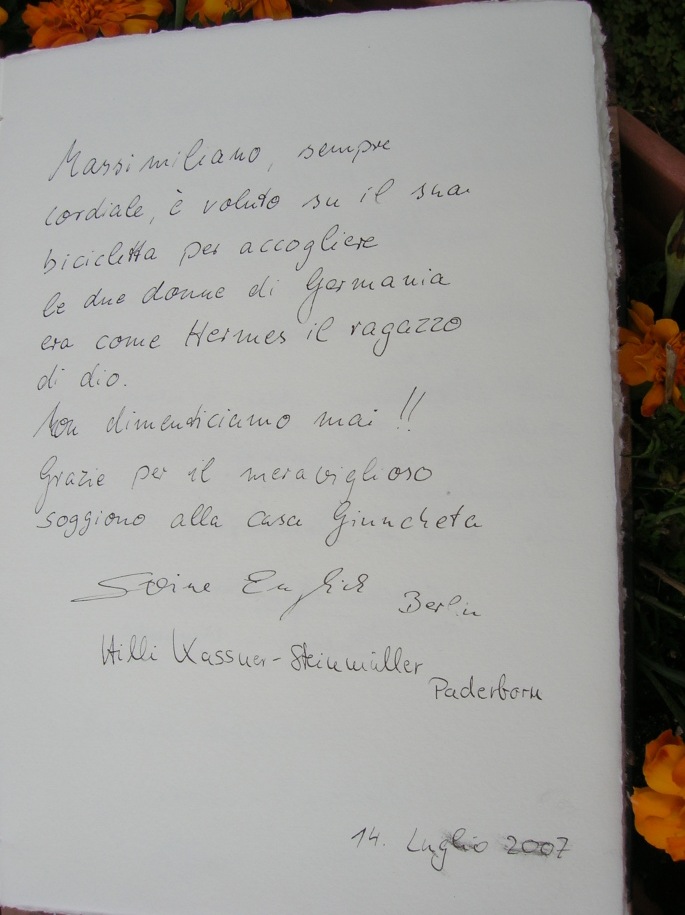 Massimiliano, sempre
cordiale, è voluto su il sua
bicicletta per accogliere
le due donne di Germania
era come Hermes il ragazzo
di dio.
Non dimenticiamo mai !!
Grazie per il meraviglioso
soggiono alla casa Giuncheta
Berlin
Hilli Kassner-Steinmüller
Paderborn
14. Luglio 2007